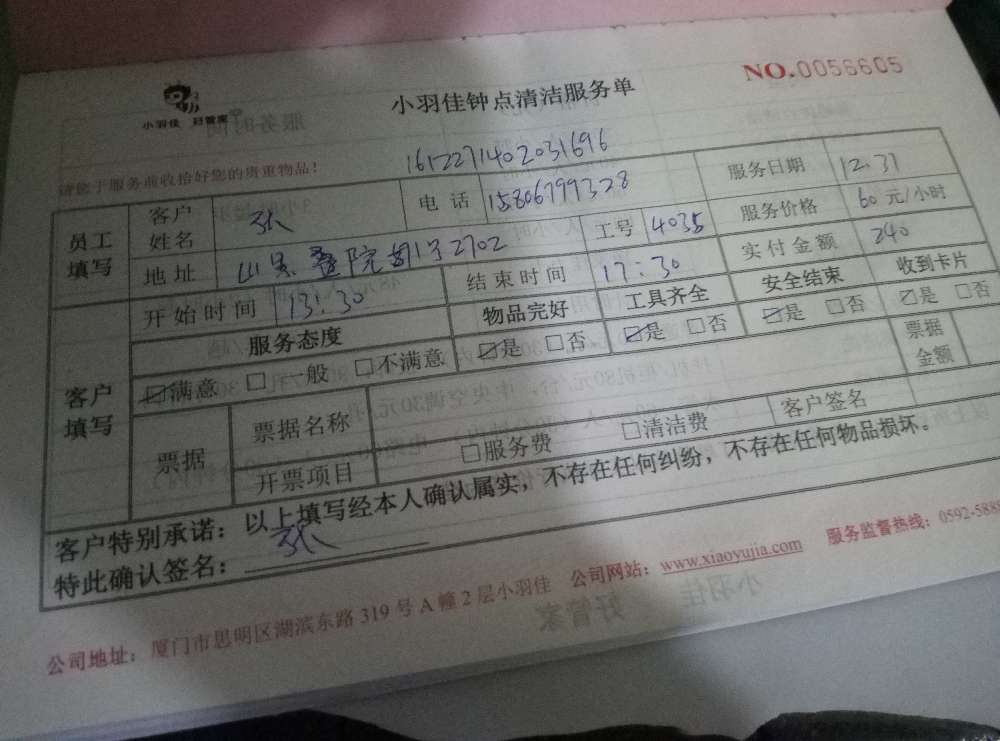 NO.0056605
小羽佳 好管家
小羽佳钟点清洁服务单
请您于服务前收拾好您的贵重物品!
161227140203 1696
员工填写 客户姓名 张 电话 15806799328 服务日期 12.31
地址 2702 工号 4035 服务价格 60元/小时
开始时间 13:30 结束时间 17:30 实付金额 240
客户填写 服务态度 物品完好 工具齐全 安全结束 收到卡片
☑满意 □一般 □不满意 ☑是 □否 ☑是 □否 ☑是 □否 ☑是 □否
票据 票据名称 票据金额
开票项目 □服务费 □清洁费 客户签名
客户特别承诺:以上填写经本人确认属实,不存在任何纠纷,不存在任何物品损坏。
特此确认签名: 张
公司地址:厦门市思明区湖滨东路319号A幢2层小羽佳 公司网站:www.xiaoyujia.com 服务监督热线:0592-588